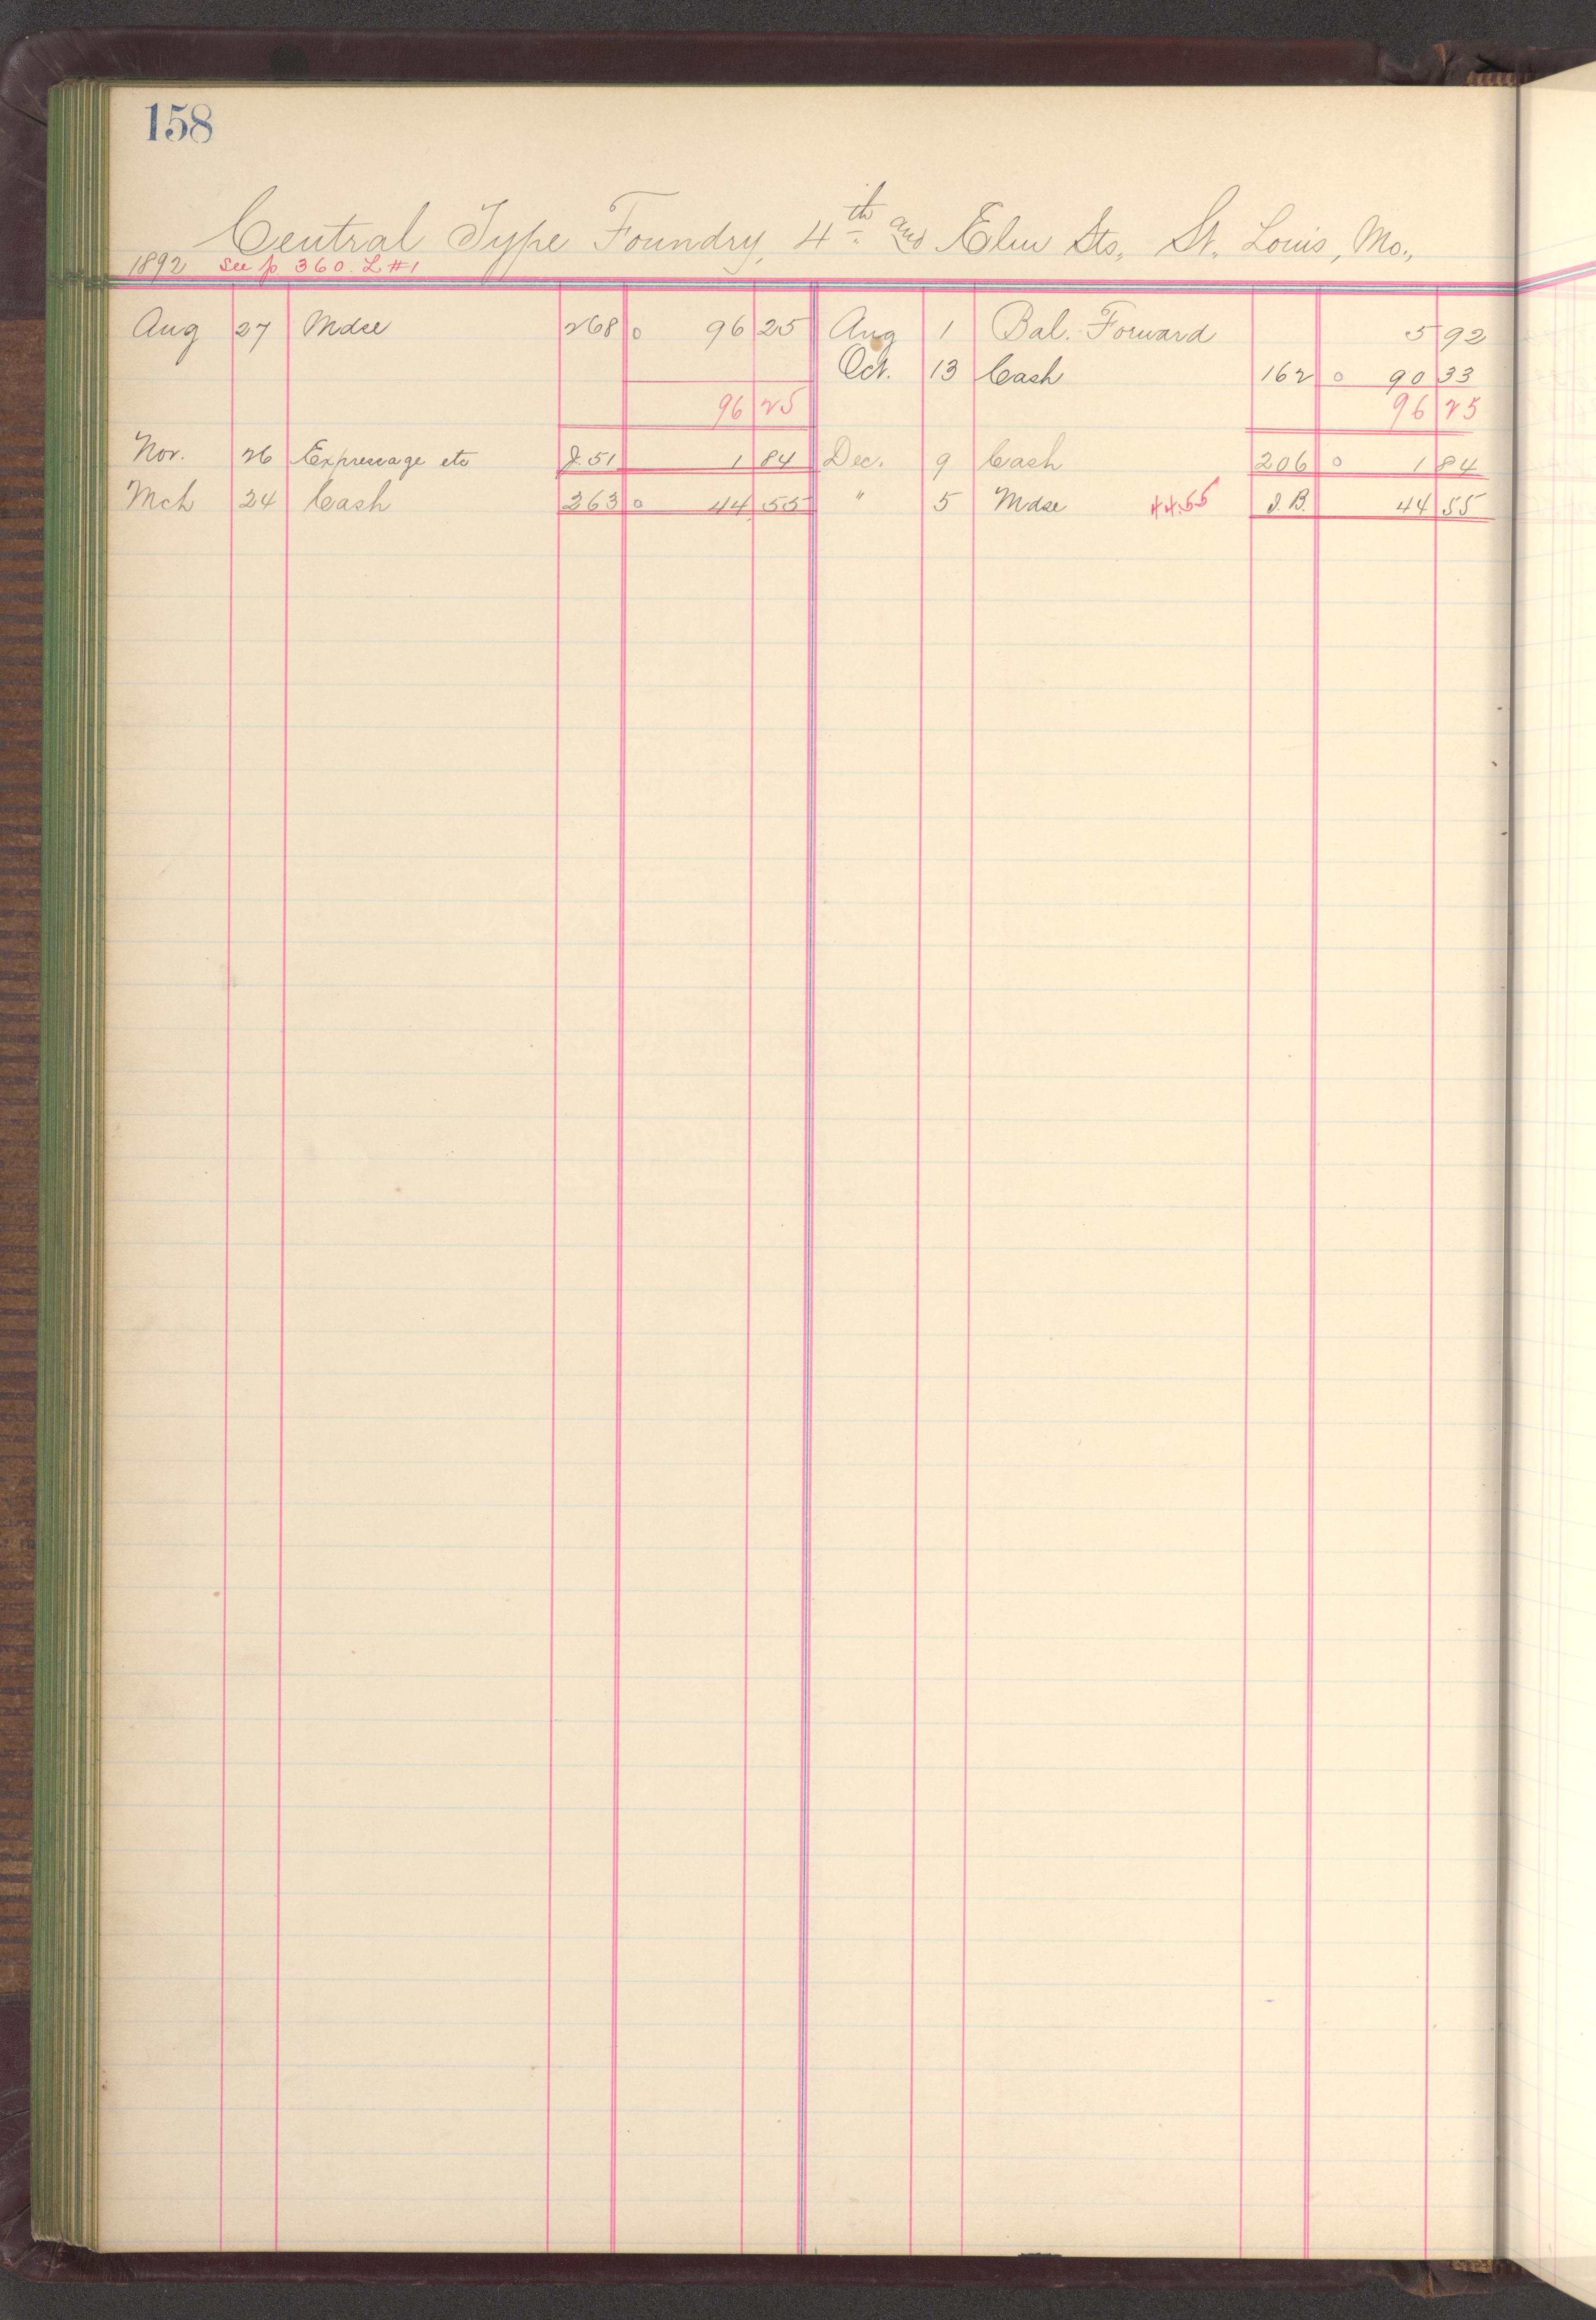 158
Central Type Foundry, 4th and Elm Sts., St. Louis, Mo.,
1892 See p 360. L #1
Aug 27 Mdse 268 0 96 25 Aug 1 Bal. Forward 5 92
Oct. 13 Cash 162 0 90 33
96 25 96 25
Nov. 26 Expressage etc J. 51 1 84 Dec. 9 Cash 206 0 1 84
Mch 24 Cash 263 0 44 55 " 5 Mdse 44.55 J. B. 44 55